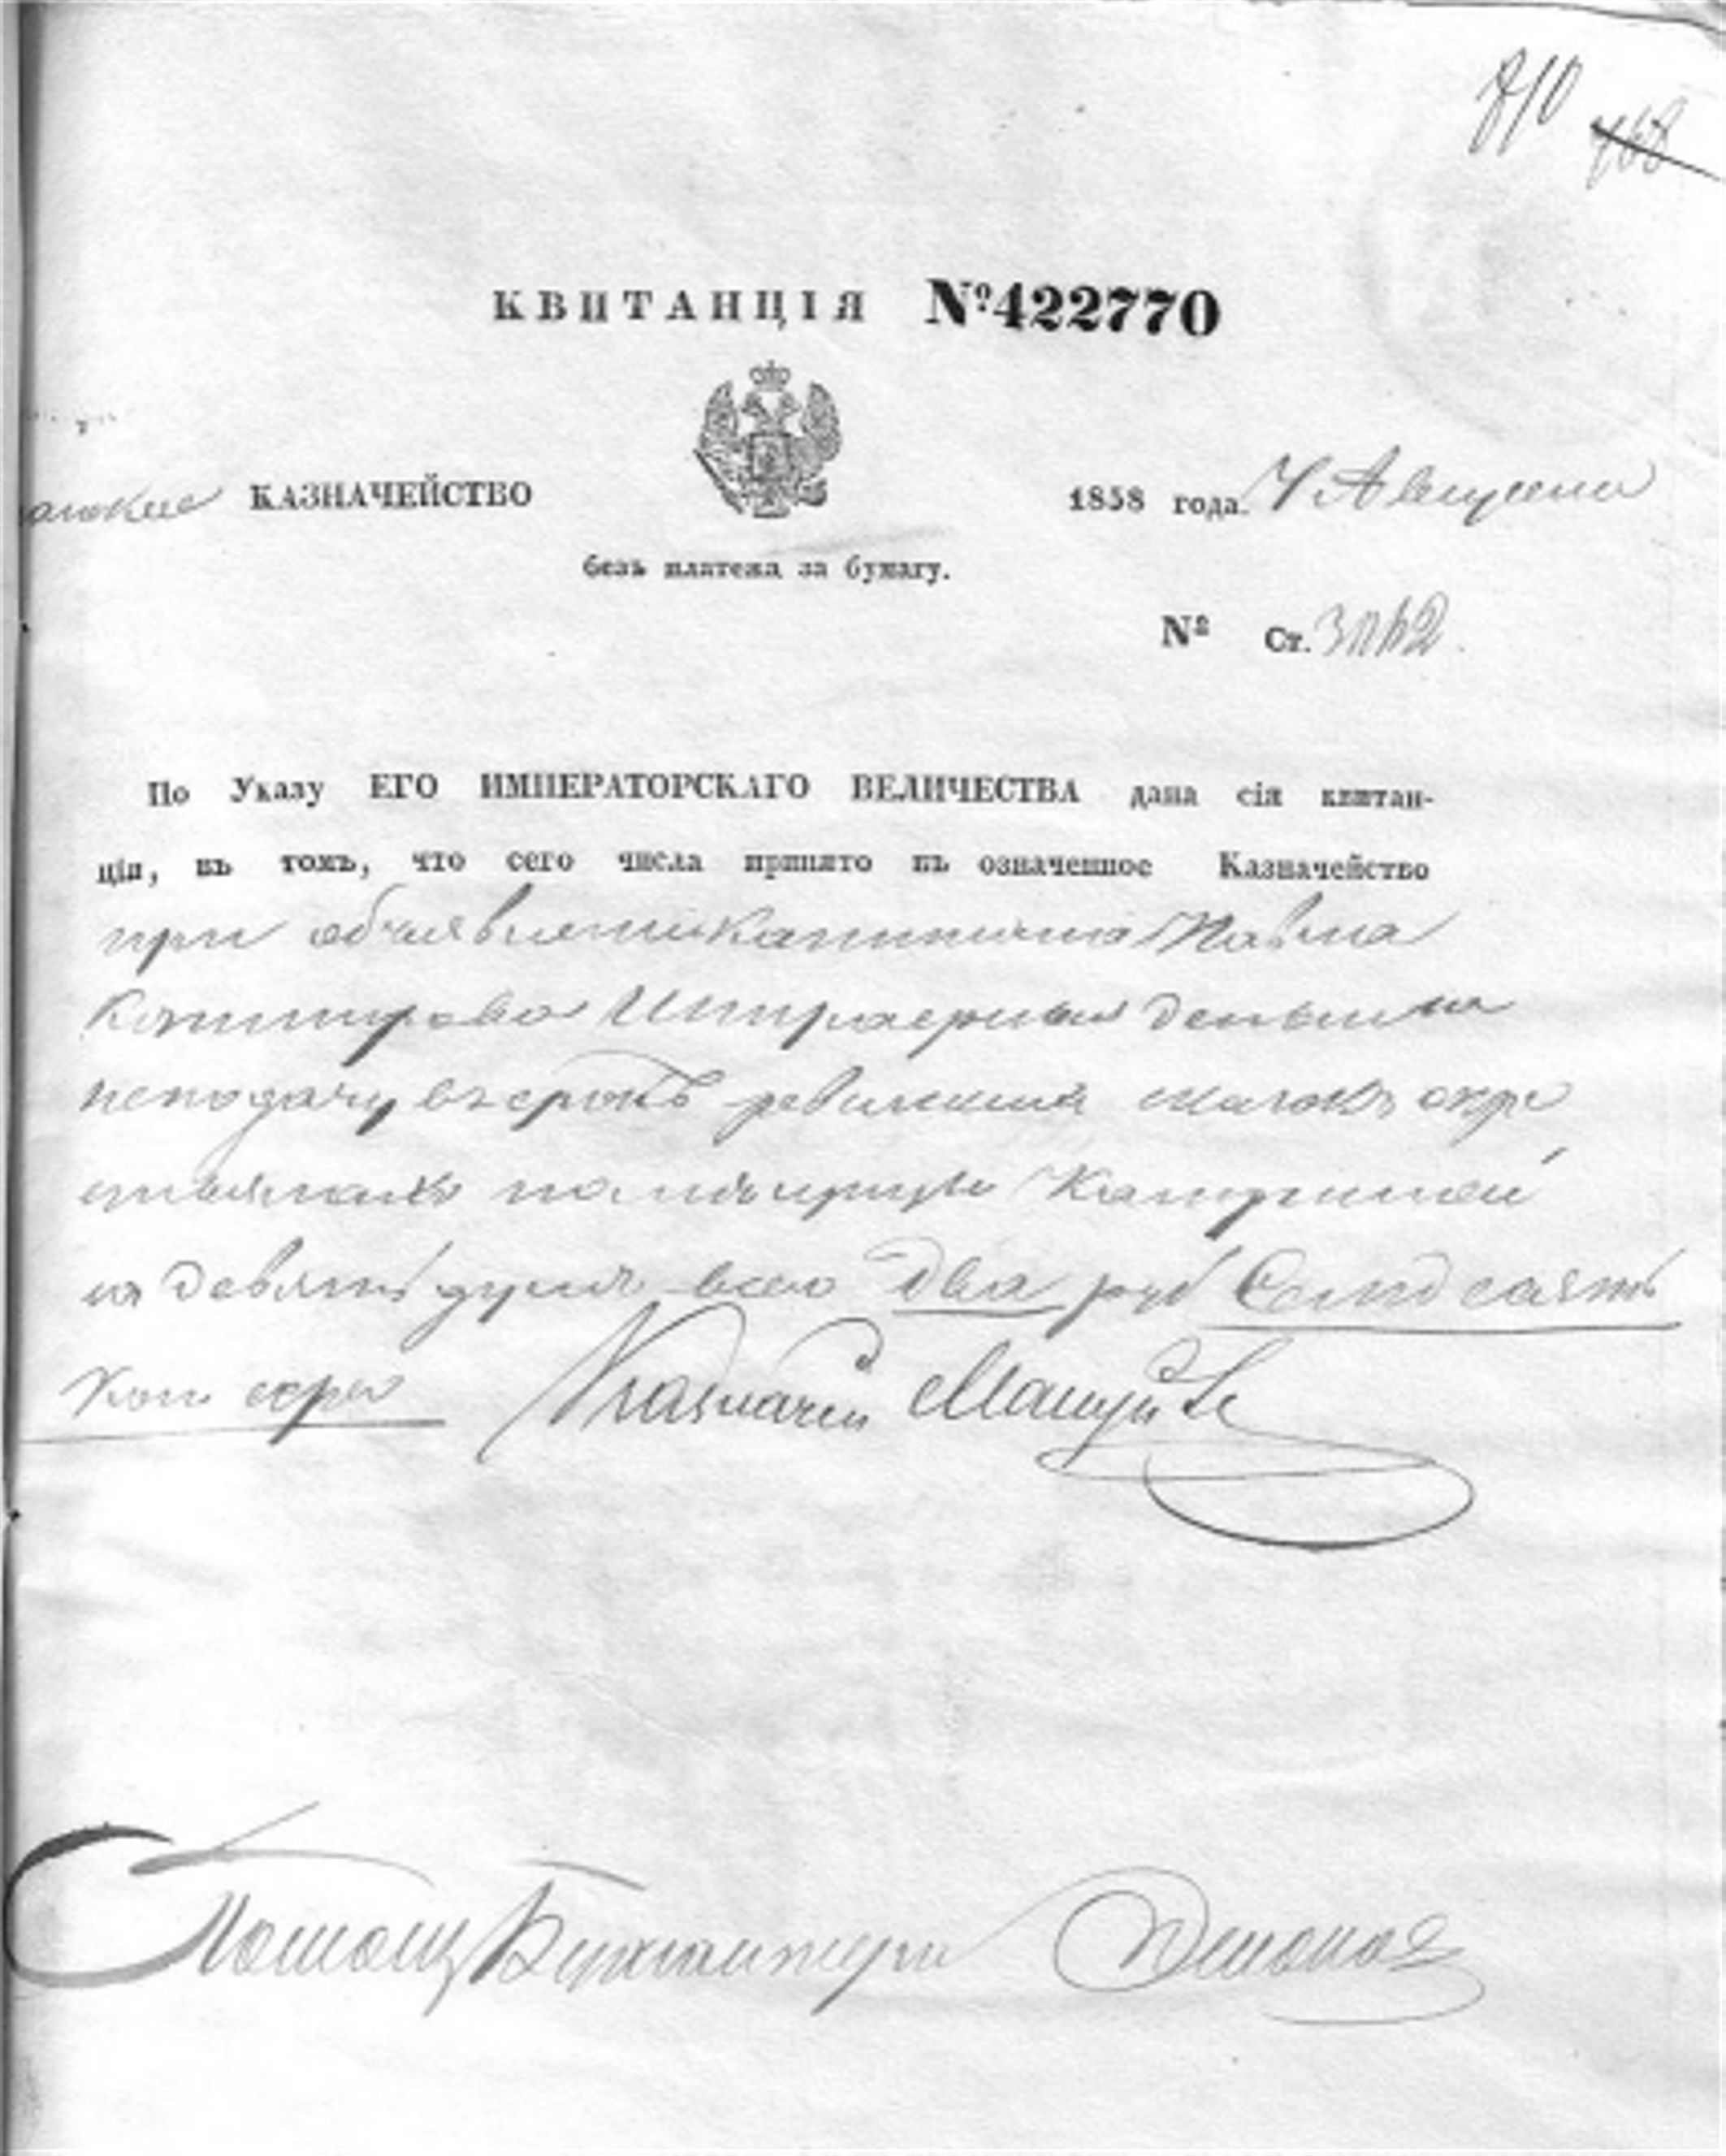 810 768
КВИТАНЦІЯ №422770
КАЗНАЧЕЙСТВО
1858 года. 7 Августа
безъ платежа за бумагу.
№ Ст.
По Указу ЕГО ИМПЕРАТОРСКАГО ВЕЛИЧЕСТВА дана сія квитан-
ція, въ томъ, что сего числа принято въ означенное Казначейство
при объявленіи Капитана Павла
Штрафныя деньги за
неподачу въ срокъ ревизкихъ сказокъ о кре
стьянахъ помещицы
на девять душъ всего два руб Семдесятъ
коп сереб Казначей
Помощ Бухгалтера